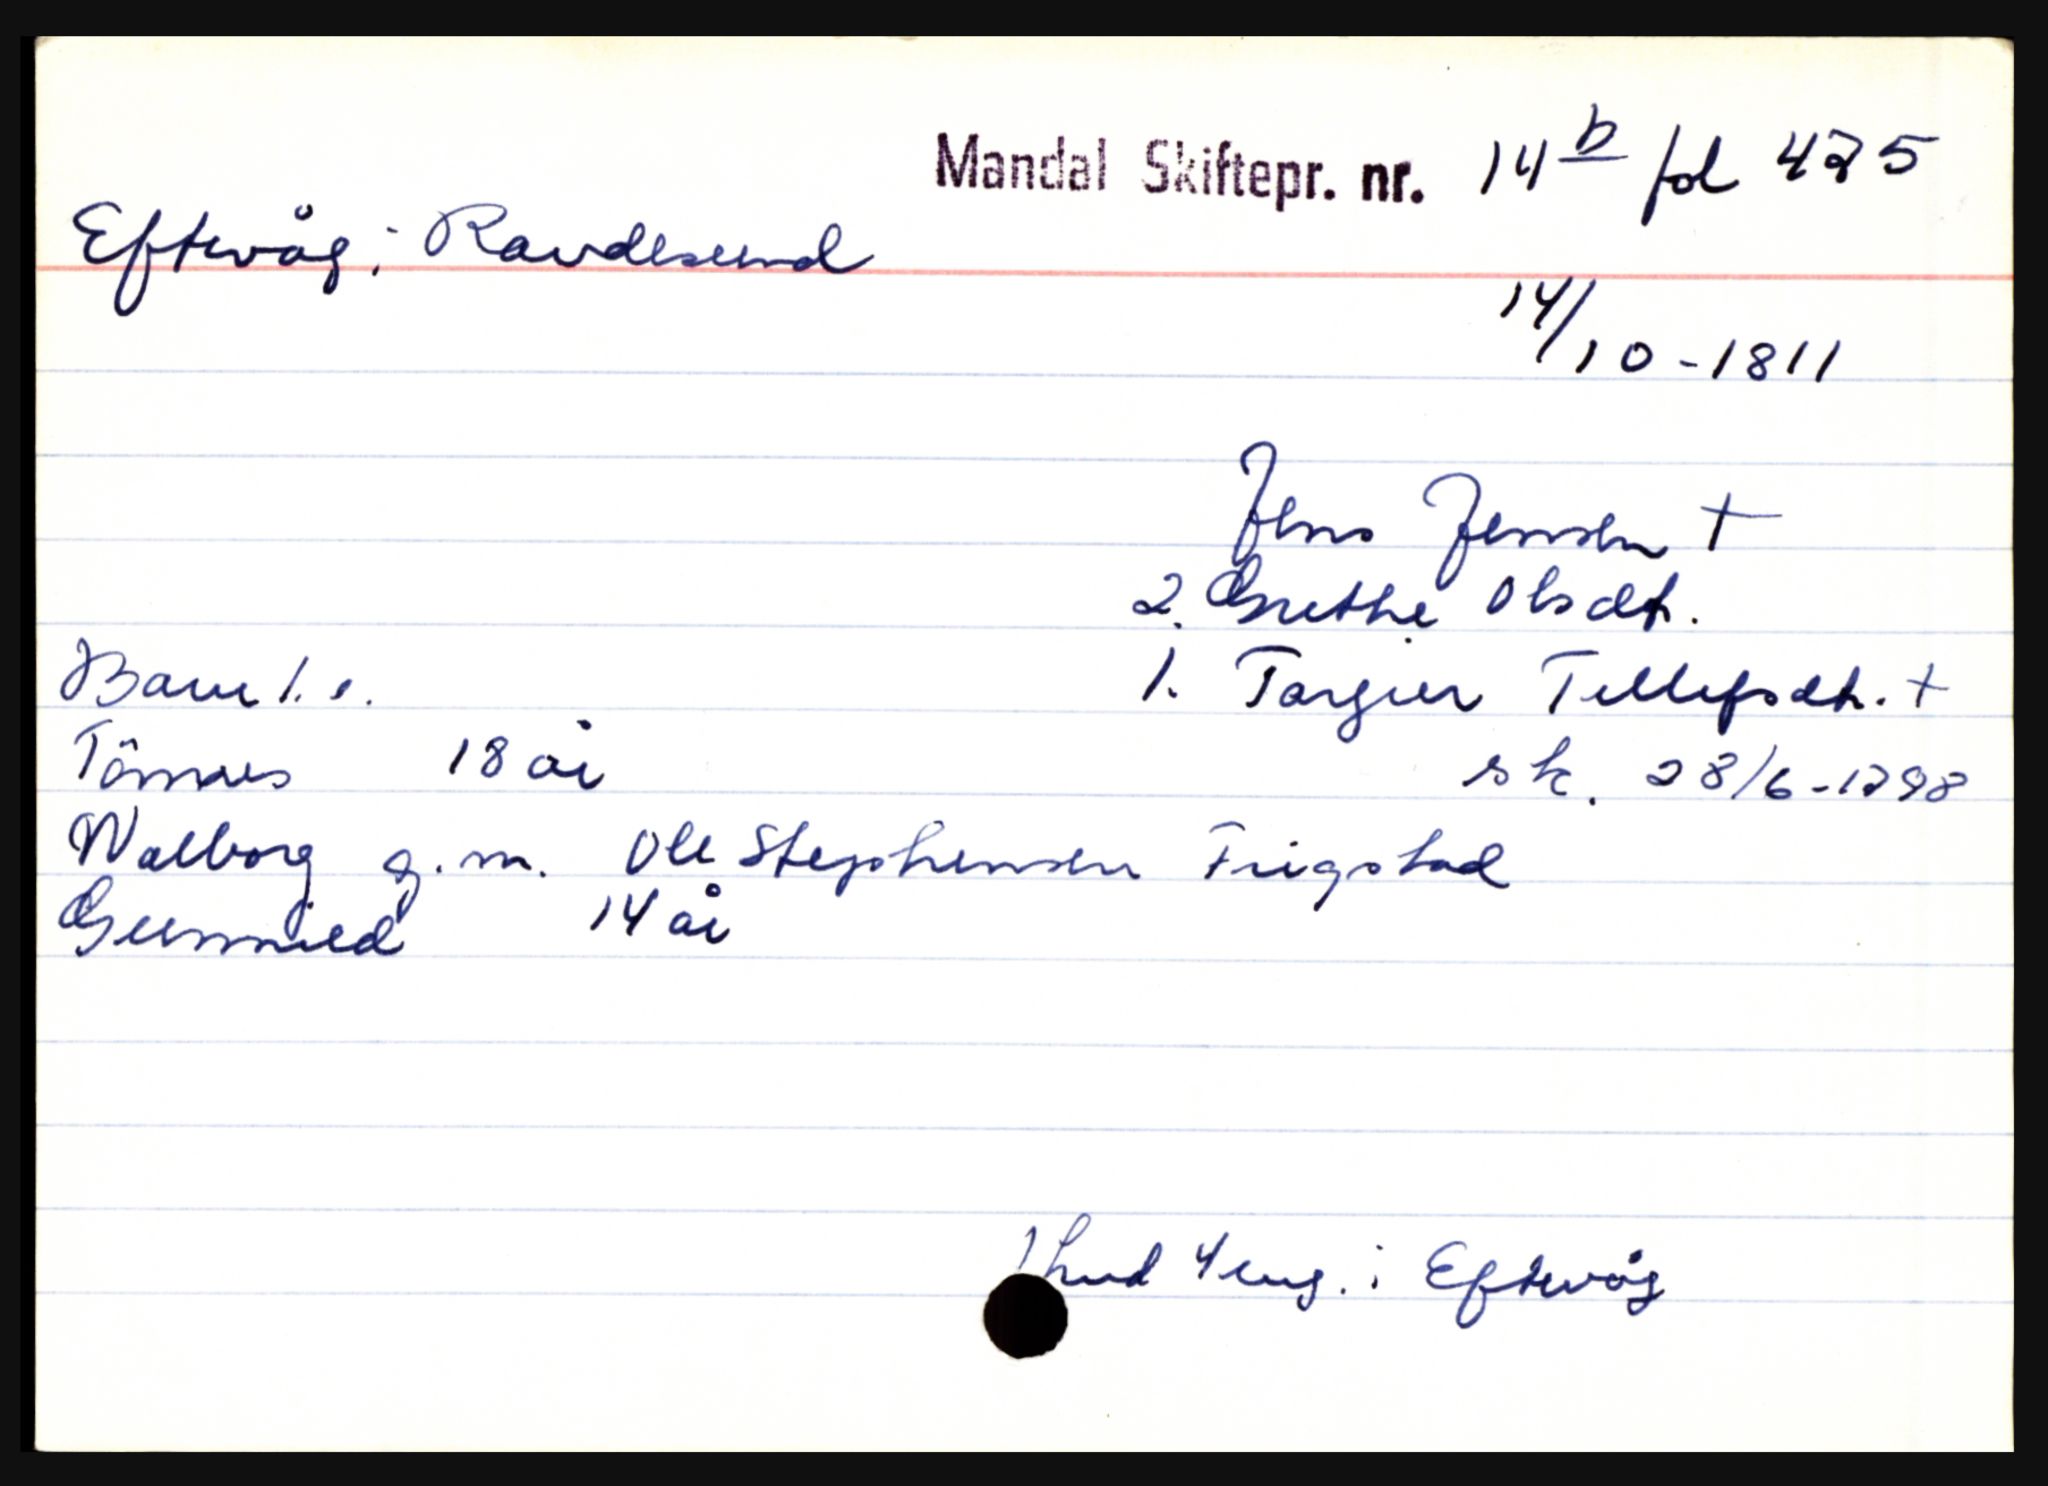 Mandal Skiftepr. nr. 14 b fol 475
Eftevåg i Randesund
14/10-1811
Jens Jensen +
2. Grethe Olsdt.
Barn 1. e.
1. Targier Tellefsdt. +
Tönnes 18 år
sk. 28/6-1798
Walborg g.m. Ole Stephensen Frigstad
Gunnild 14 år
1 hud 4 eng. i Eftevåg